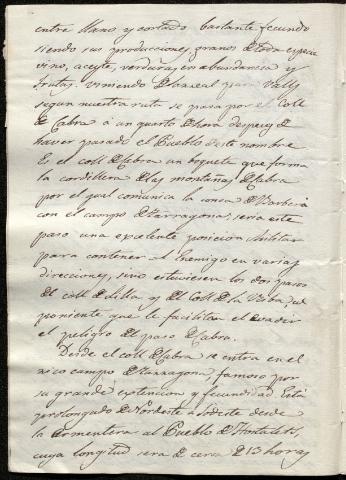 entre llano y cortado bastante fecundo
siendo sus producciones, granos de toda especie
vino, aceyte, verduras en abundancia y
frutas. viniendo de Sarreal para Valls
segun nuestra ruta se pasa por el Coll
de Cabra a un quarto de hora despues de
haver pasado el Pueblo de este nombre
Es el coll de Cabra un boquete que forma
la cordillera de las montañas de Cabra
por el qual comunica la conca de Barberá
con el campo de Tarragona, seria este
paso una excelente posicion Militar
para contener al Enemigo en varias
direcciones, sino estuviesen los dos pasos
del coll de Lilla y del Coll de la
poniente que le facilitan el evadir
el peligro del paso de Cabra.
Desde el coll de Cabra se entra en el
rico campo de Tarragona, famoso por
su grande extencion y fecundidad. Está
prolongado de Nordeste a Sudeste desde
la Armentera al Pueblo de Hontalets,
cuya longitud será de cerca de 13 horas